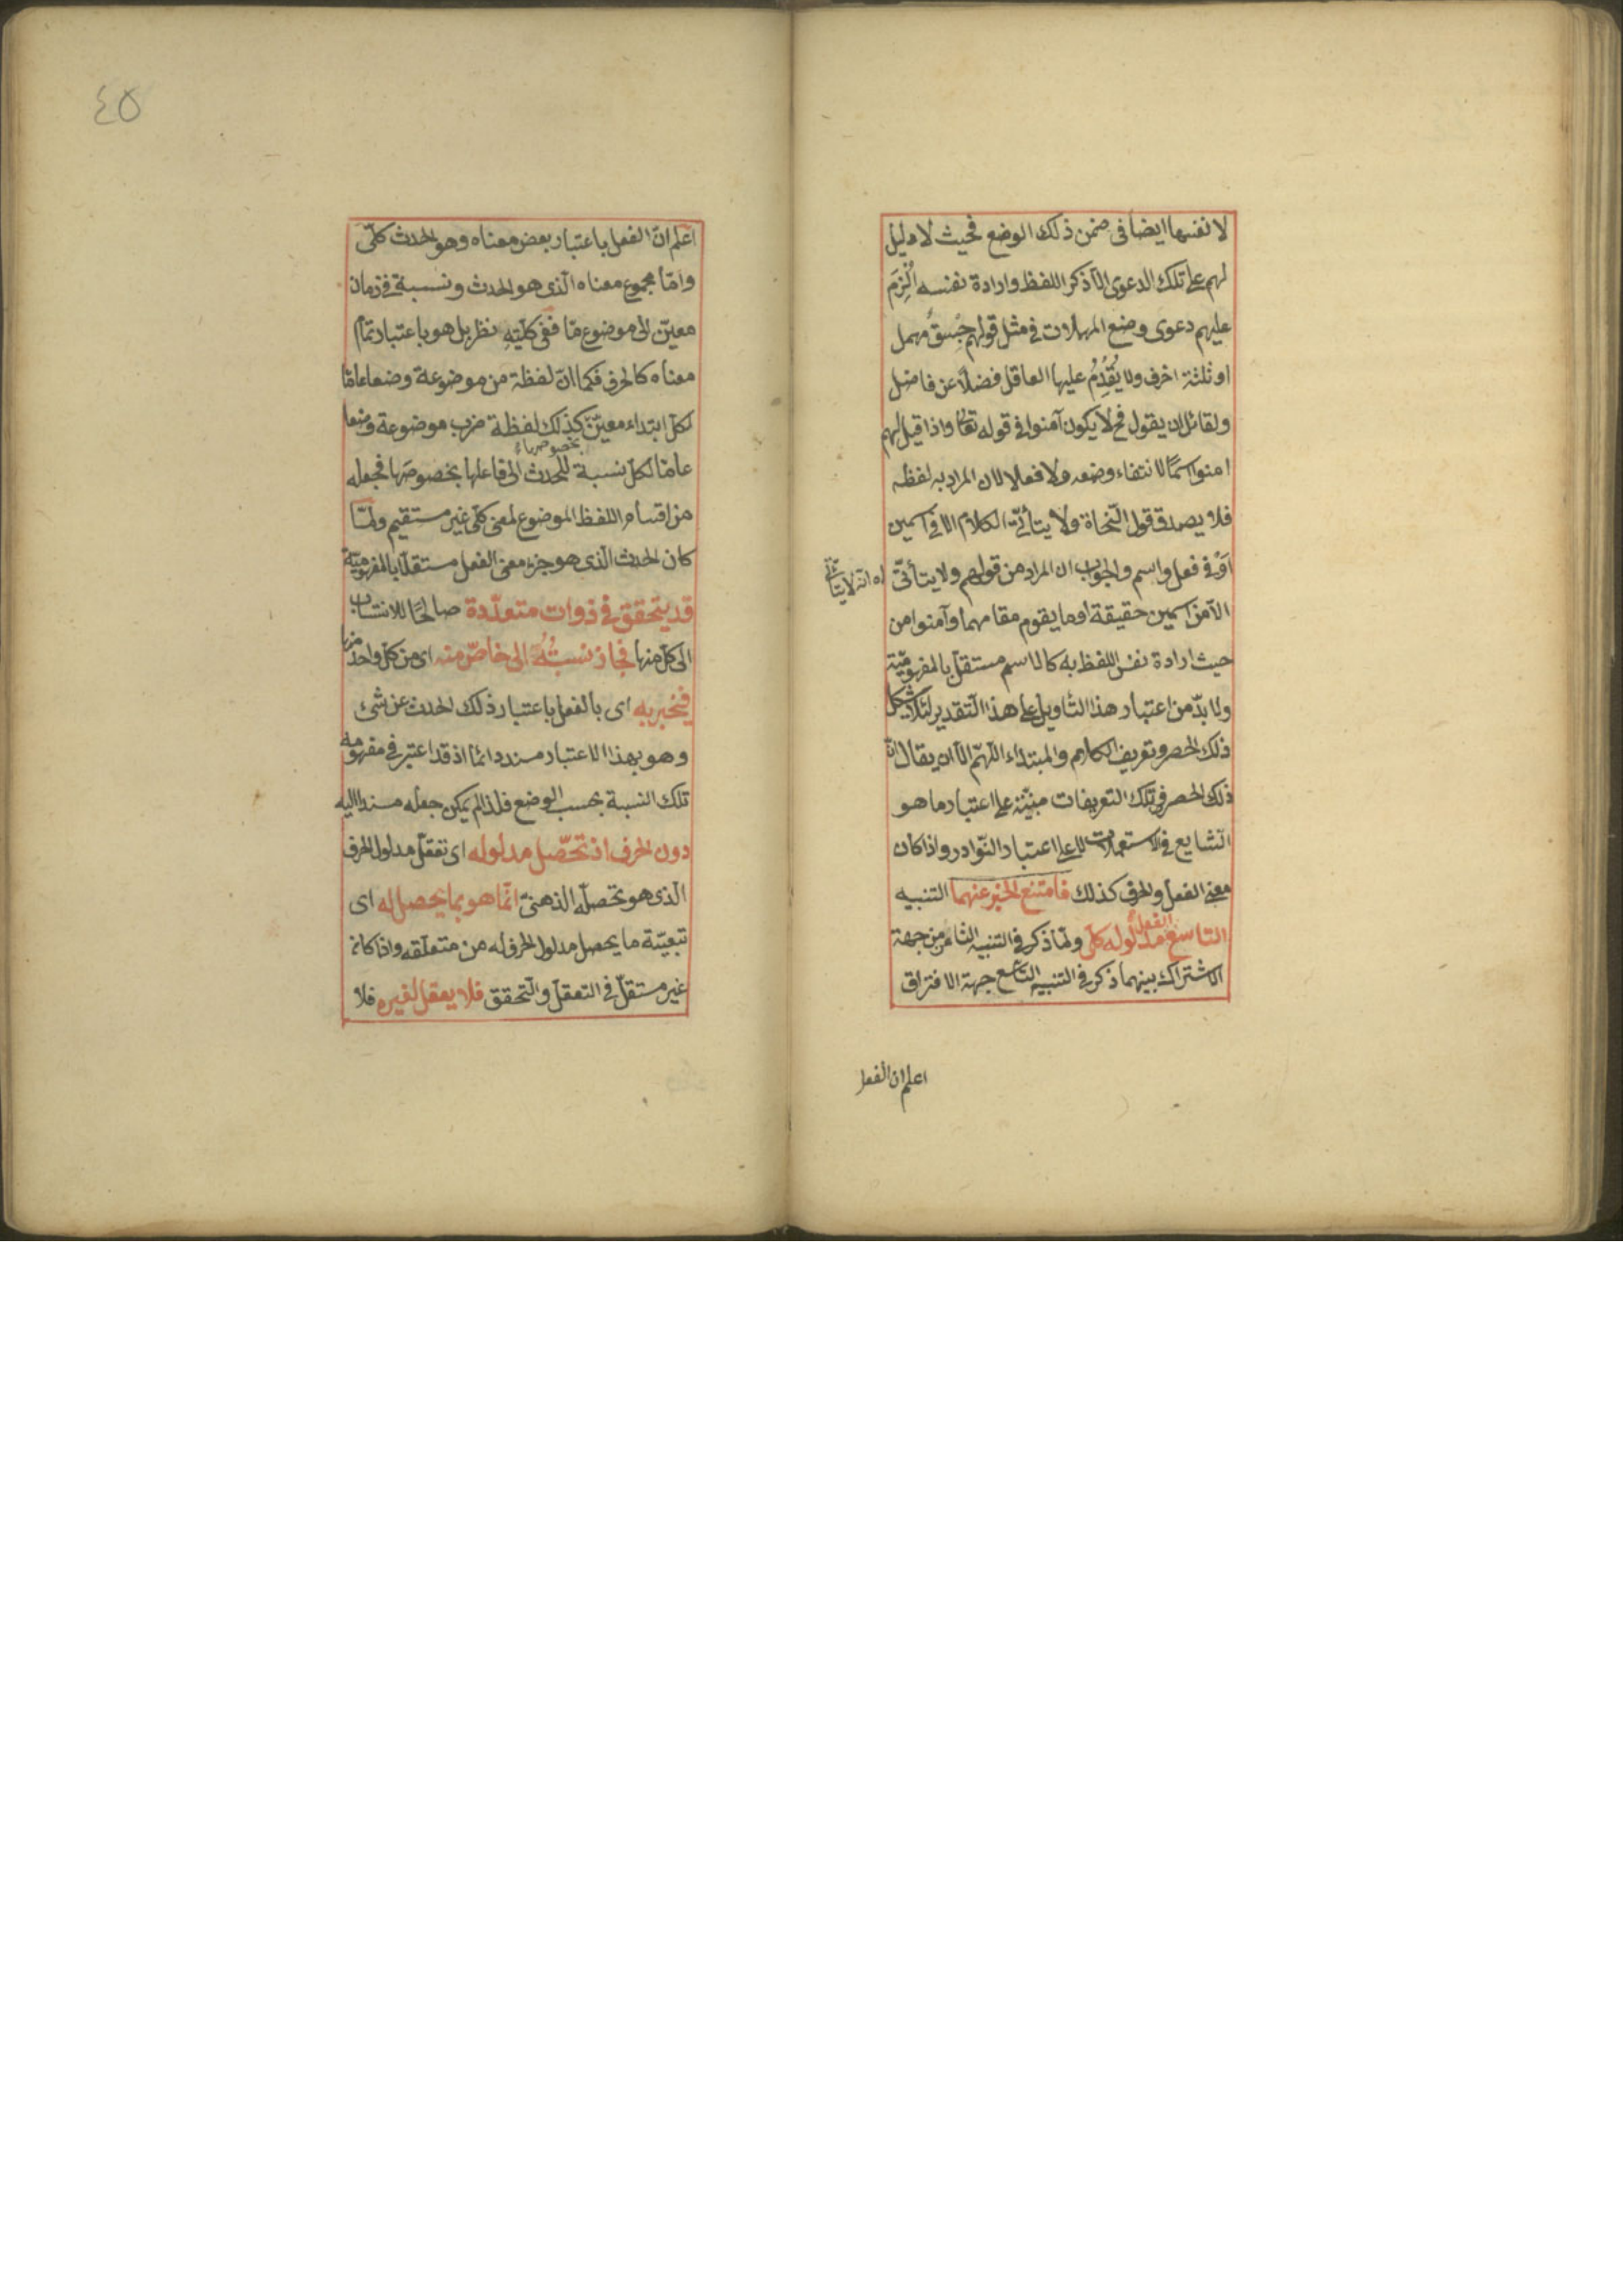 لا نفسها ايضا فى ضمن ذلك الوضع فحيث لا دليل
لهم على تلك الدعوى الّا ذكر اللفظ وارادة نفسه اُلْزِمَ
عليهم دعوى وضع المهملات فى مثل قولهم جسق مهمل
او ثلثة احرف ولا يُقْدِمُ عليها العاقل فضلًا عن فاضل
ولقائل ان يقول فح لا يكون آمنوا فى قوله تعا واذا قيل لهم
امنوا اسمًا لانتفاء وضعه ولا فعلا لان المراد به لفظه
فلا يصدق قول النّحاة ولا يتأتّى الكلام الا فى اسمين
اَوْ فى فعل واسم والجواب ان المراد من قولهم ولا يتأتّى
اه انه لا يتأتى
الّا من اسمين حقيقة او ما يقوم مقامهما وآمنوا من
حيث ارادة نفس اللفظ به كالاسم مستقل بالمفهوميّة
ولا بدّ من اعتبار هذا التأويل على هذا التقدير لئلا يشكل
ذلك الحصر وتعريف الكلام والمبتداء اللّهمّ الّا ان يقال انّ
ذلك الحصر فى تلك التعريفات مبنيّة على اعتبار ما هو
الشايع فى الاستعمالات لا على اعتبار النّوادر واذا كان
معنى الفعل والحرف كذلك فامتنع الخبر عنهما التنبيه
التاسع الفعل مدلوله كلّى ولمّا ذكر فى التنبيه الثامن من جهة
الاشتراك بينهما ذكر فى التنبيه التاسع جهة الافتراق
اعلم ان الفعل
٤٥
اعلم انّ الفعل باعتبار بعض معناه وهو الحدث كلّى
وامّا مجموع معناه الّذى هو الحدث ونسبة فى زمان
معيّن الى موضوع مّا ففى كلّيّته نظر بل هو باعتبار تمام
معناه كالحرف فكما انّ لفظة من موضوعة وضعا عامّا
لكلّ ابتداء معيّن كذلك لفظة ضرب موضوعة وضعا
بخصوصها
عامّا لكلّ نسبة للحدث الى فاعلها بخصوصها فجعله
من اقسام اللفظ الموضوع لمعنى كلّى غير مستقيم ولمّا
كان الحدث الّذى هو جزء معنى الفعل مستقلّا بالمفهوميّة
قد يتحقق فى ذوات متعدّدة صالحًا للانتساب
الى كلّ منها فجاز نسبتُهُ الى خاصّ منه اى من كلّ واحد منها
فيخبر به اى بالفعل باعتبار ذلك الحدث عن شئ
وهو بهذا الاعتبار مسند دائما اذ قد اعتبر فى مفهومه
تلك النسبة بحسب الوضع فلذا لم يمكن جعله مسندا اليه
دون الحرف اذ تحصّل مدلوله اى تعقّل مدلول الحرف
الّذى هو تحصلّه الذهنىّ انّما هو بما يحصل له اى
تبعيّة ما يحصل مدلول الحرف له من متعلّقه واذا كان
غير مستقلّ فى التعقل والتحقق فلا يعقل لغيره فلا